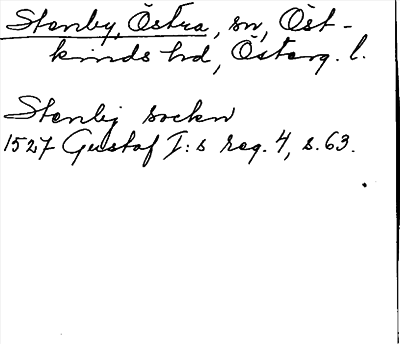 Stenby, Östra, sn, Öst-
kinds hd, Österg. l.
Stenby sockn
1527 Gustaf I:s reg. 4, s. 63.